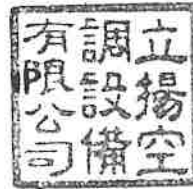 立揚空
調設備
有限公司